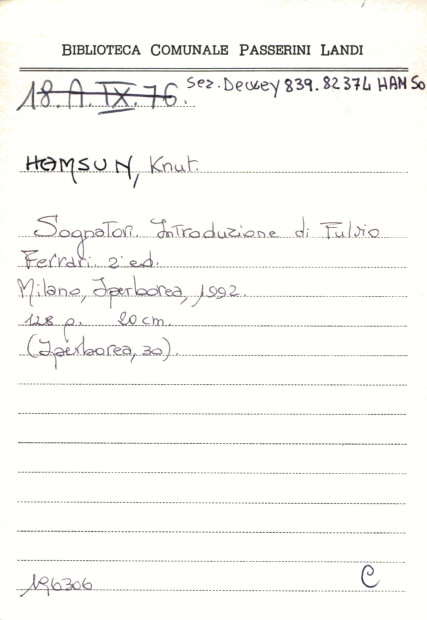 BIBLIOTECA COMUNALE PASSERINI LANDI
18.A.IX.76. Sez. Dewey 839.82374 HAMSO
HAMSUN, Knut.
Sognatori. Introduzione di Fulvio
Ferrari. 2ª ed.
Milano, Iperborea, 1992.
128 p. 20 cm.
(Iperborea, 30).
196306 C